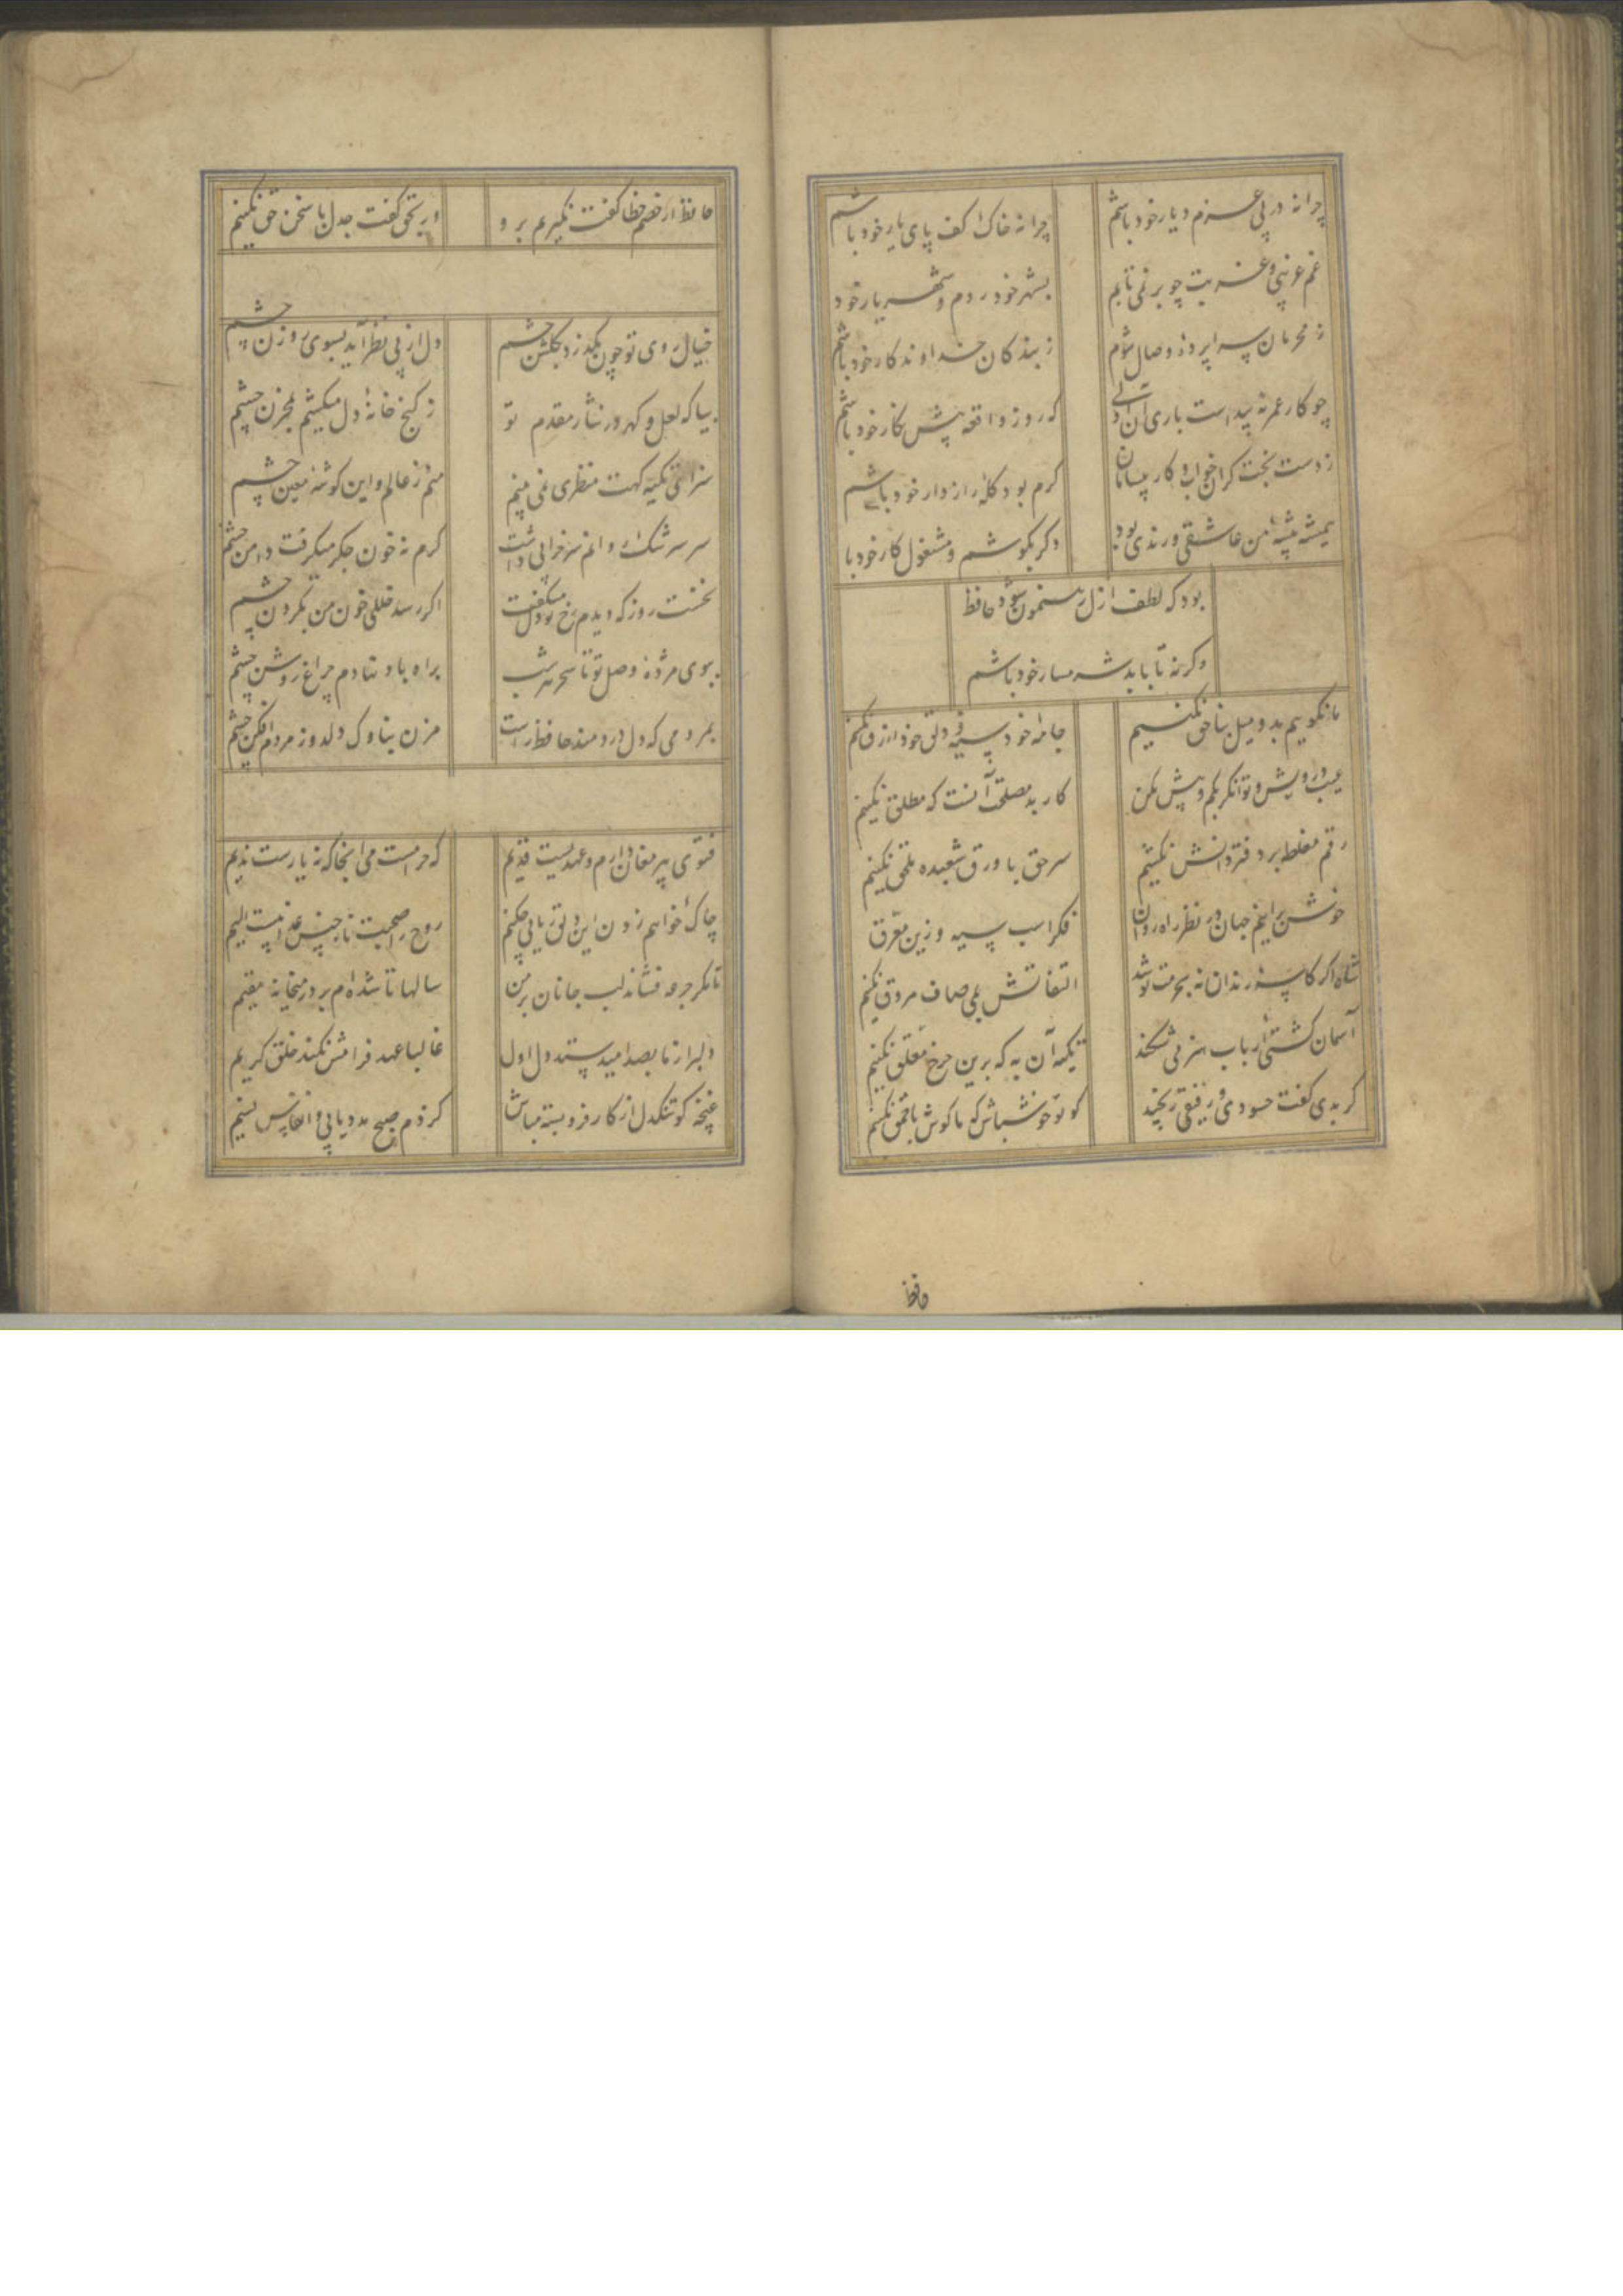 چرا نه در پی عزم دیار خود باشم چرا نه خاک کف پای یار خود باشم
غم غریبی و غربت چو بر نمی تابم بشهر خود روم و شهریار خود
ز محرمان سراپرده وصال شوم ز بندکان خداوندکار خود باشم
چو کار عمر نه پیداست باری آن اولی که روز واقعه پیش نکار خود باشم
ز دست بخت کران خواب و کار بیسامان کرم بود کله راز دار خود باشم
همیشه پیشه من عاشقی و رندی بود دکر بکوشم و مشغول کار خود با
بود که لطف ازل رهنمون شود حافظ
وکرنه تا بابد شرمسار خود باشم
ما نکوییم بد و میل بناحق نکنیم جامه خود سیه و دلق خود ازرق نکنیم
عیب درویش و توانکر بکم و بیش مکن کار بد مصلحت آنست که مطلق نکنیم
رقم مغلطه بر دفتر دانش نکشیم سر حق با ورق شعبده ملحق نکنیم
خوش برانیم جهان در نظر راه روان فکر اسب سیه و زین مغرق
شاه اکر کاسه رندان نه بحرمت نوشد التفاتش بمی صاف مروق نکنیم
آسمان کشتی ارباب هنر می شکند تکیه آن به که برین چرخ معلق نکنیم
کر بدی کفت حسودی و رفیقی رنجید کو تو خوش باش که ما کوش باحمق نکنیم
حافظ
حافظ ار خصم خطا کفت نکیریم برو ور بحق کفت جدل با سخن حق نکنیم
خیال روی تو چون بکذرد بکلشن چشم دل از پی نظر آید بسوی روزن چشم
بیا که لعل و کهر در نثار مقدم تو ز کنج خانه دل میکشیم بمخزن چشم
سزای تکیه کهت منظری نمی بینم منم ز عالم و این کوشه معین چشم
سحر سرشک روانم سر خرابی داشت کرم نه خون جکر میکرفت دامن چشم
نخست روز که دیدم رخ تو دل میکفت اکر رسد خللی خون من بکردن چشم
ببوی مژده وصل تو تا سحر شب براه باد نهادم چراغ روشن چشم
بمردمی که دل دردمند حافظ راست مزن بناوک دلدوز مردم افکن چشم
فتوی پیر مغان دارم و عهدیست قدیم که حرامست می آنجا که نه یارست ندیم
چاک خواهم زدن این دلق ریایی چکنم روح را صحبت ناجنس عذابیست الیم
تا مکر جرعه فشاند لب جانان بر من سالها تا شده ام بر در میخانه مقیم
دلبر از ما بصد امید ستد دل اول غالبا عهد فرامش نکند خلق کریم
غنچه کو تنکدل از کار فروبسته مباش کز دم صبح مدد یابی و انفاس نسیم